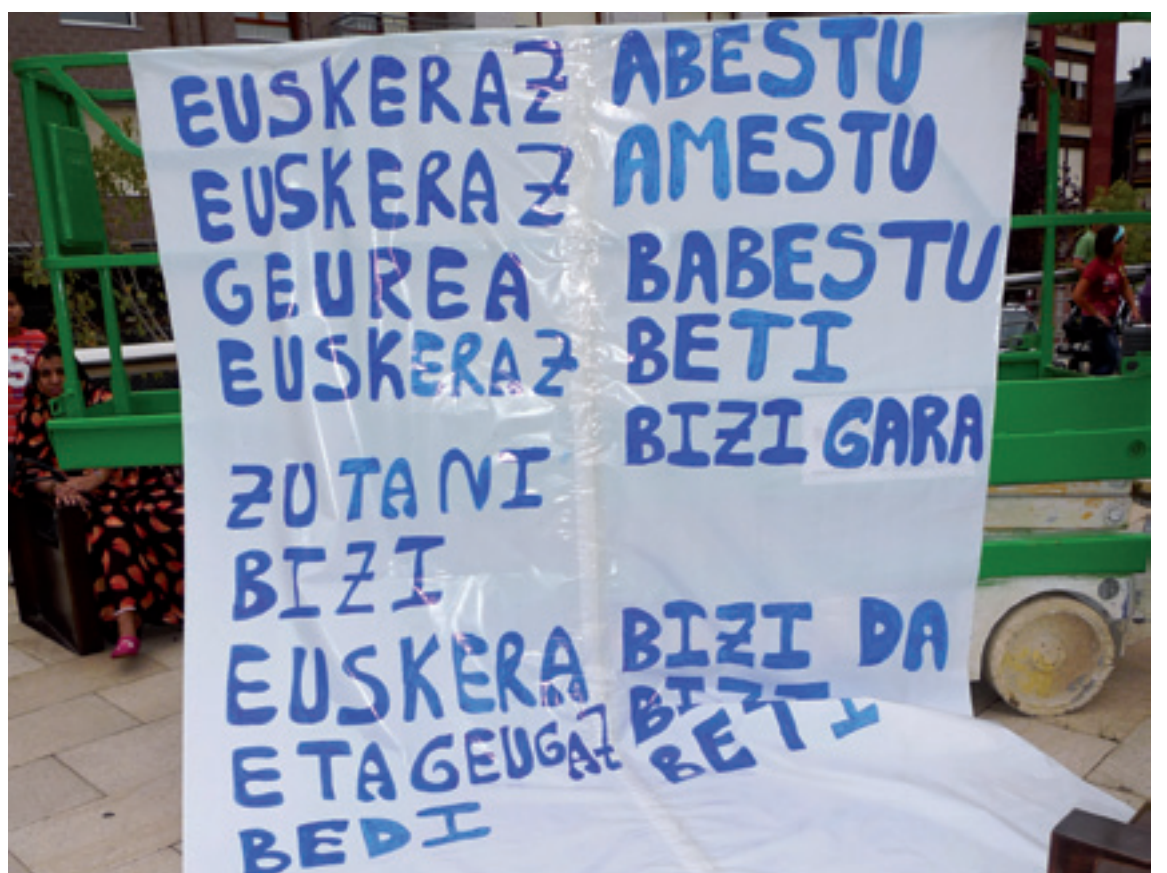 EUSKERAZ ABESTU
EUSKERAZ AMESTU
GEUREA BABESTU
EUSKERAZ BETI
BIZI GARA
ZU TA NI
BIZI
EUSKERA BIZI DA
BIZI
ETA GEUGAZ BETI
BEDI